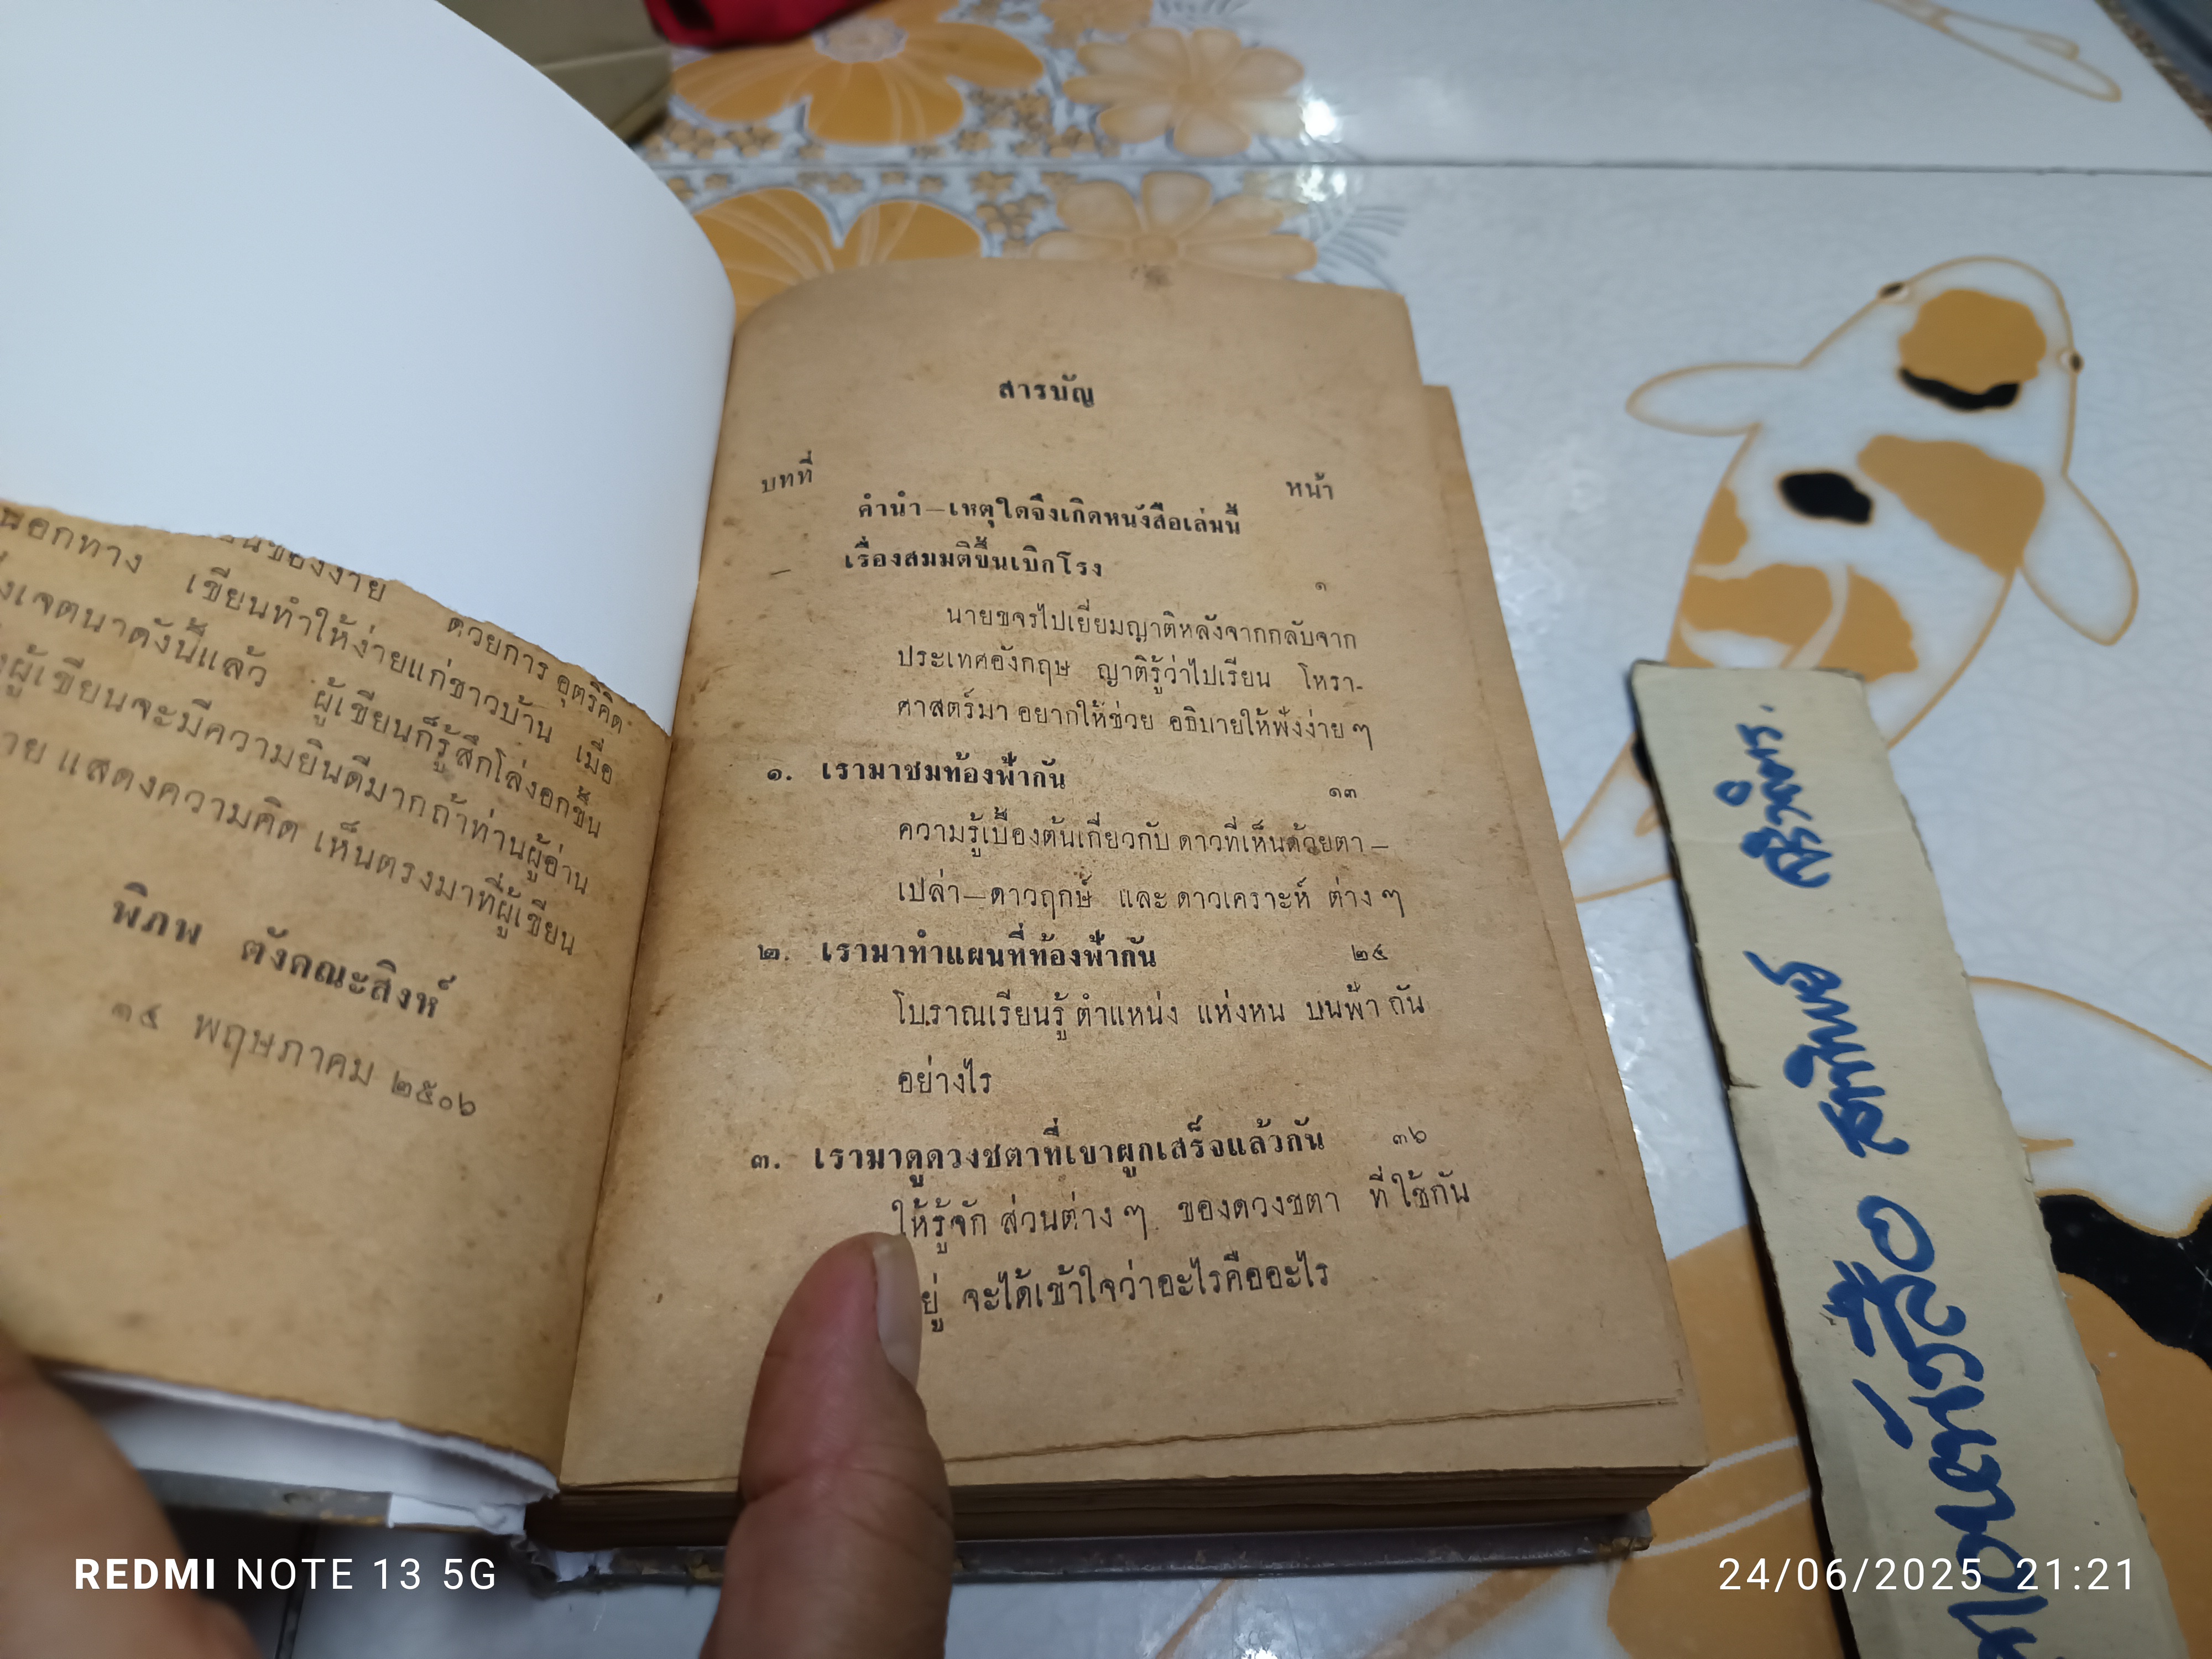 นอกทาง เขียนทำให้ง่ายแก่ชาวบ้าน เมื่อ
เจตนาดังนี้แล้ว ผู้เขียนก็รู้สึกโล่งอกขึ้น
ผู้เขียนจะมีความยินดีมากถ้าท่านผู้อ่าน
แสดงความคิด เห็นตรงมาที่ผู้เขียน
พิภพ ตังคณะสิงห์
๑๕ พฤษภาคม ๒๕๐๖
สารบัญ
บทที่ หน้า
คำนำ—เหตุใดจึงเกิดหนังสือเล่มนี้
— เรื่องสมมติขึ้นเบิกโรง ๑
นายขจรไปเยี่ยมญาติหลังจากกลับจาก
ประเทศอังกฤษ ญาติรู้ว่าไปเรียน โหรา-
ศาสตร์มา อยากให้ช่วย อธิบายให้ฟังง่าย ๆ
๑. เรามาชมท้องฟ้ากัน ๑๓
ความรู้เบื้องต้นเกี่ยวกับ ดาวที่เห็นด้วยตา—
เปล่า—ดาวฤกษ์ และ ดาวเคราะห์ ต่าง ๆ
๒. เรามาทำแผนที่ท้องฟ้ากัน ๒๕
โบราณเรียนรู้ ตำแหน่ง แห่งหน บนฟ้า กัน
อย่างไร
๓. เรามาดูดวงชตาที่เขาผูกเสร็จแล้วกัน ๓๖
ให้รู้จัก ส่วนต่าง ๆ ของดวงชตา ที่ใช้กัน
อยู่ จะได้เข้าใจว่าอะไรคืออะไร
REDMI NOTE 13 5G
24/06/2025 21:21